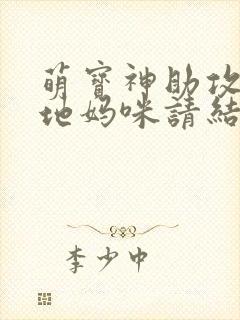 萌寶神助攻
地媽咪請結
李少中